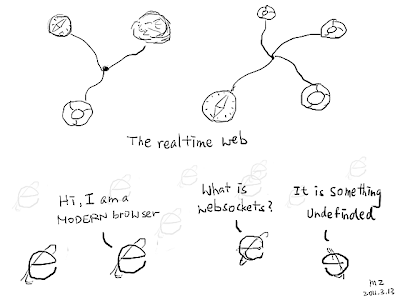 The realtime web
Hi, I am a
MODERN browser
What is
websockets?
It is something
Undefinded
mz
2011.3.13